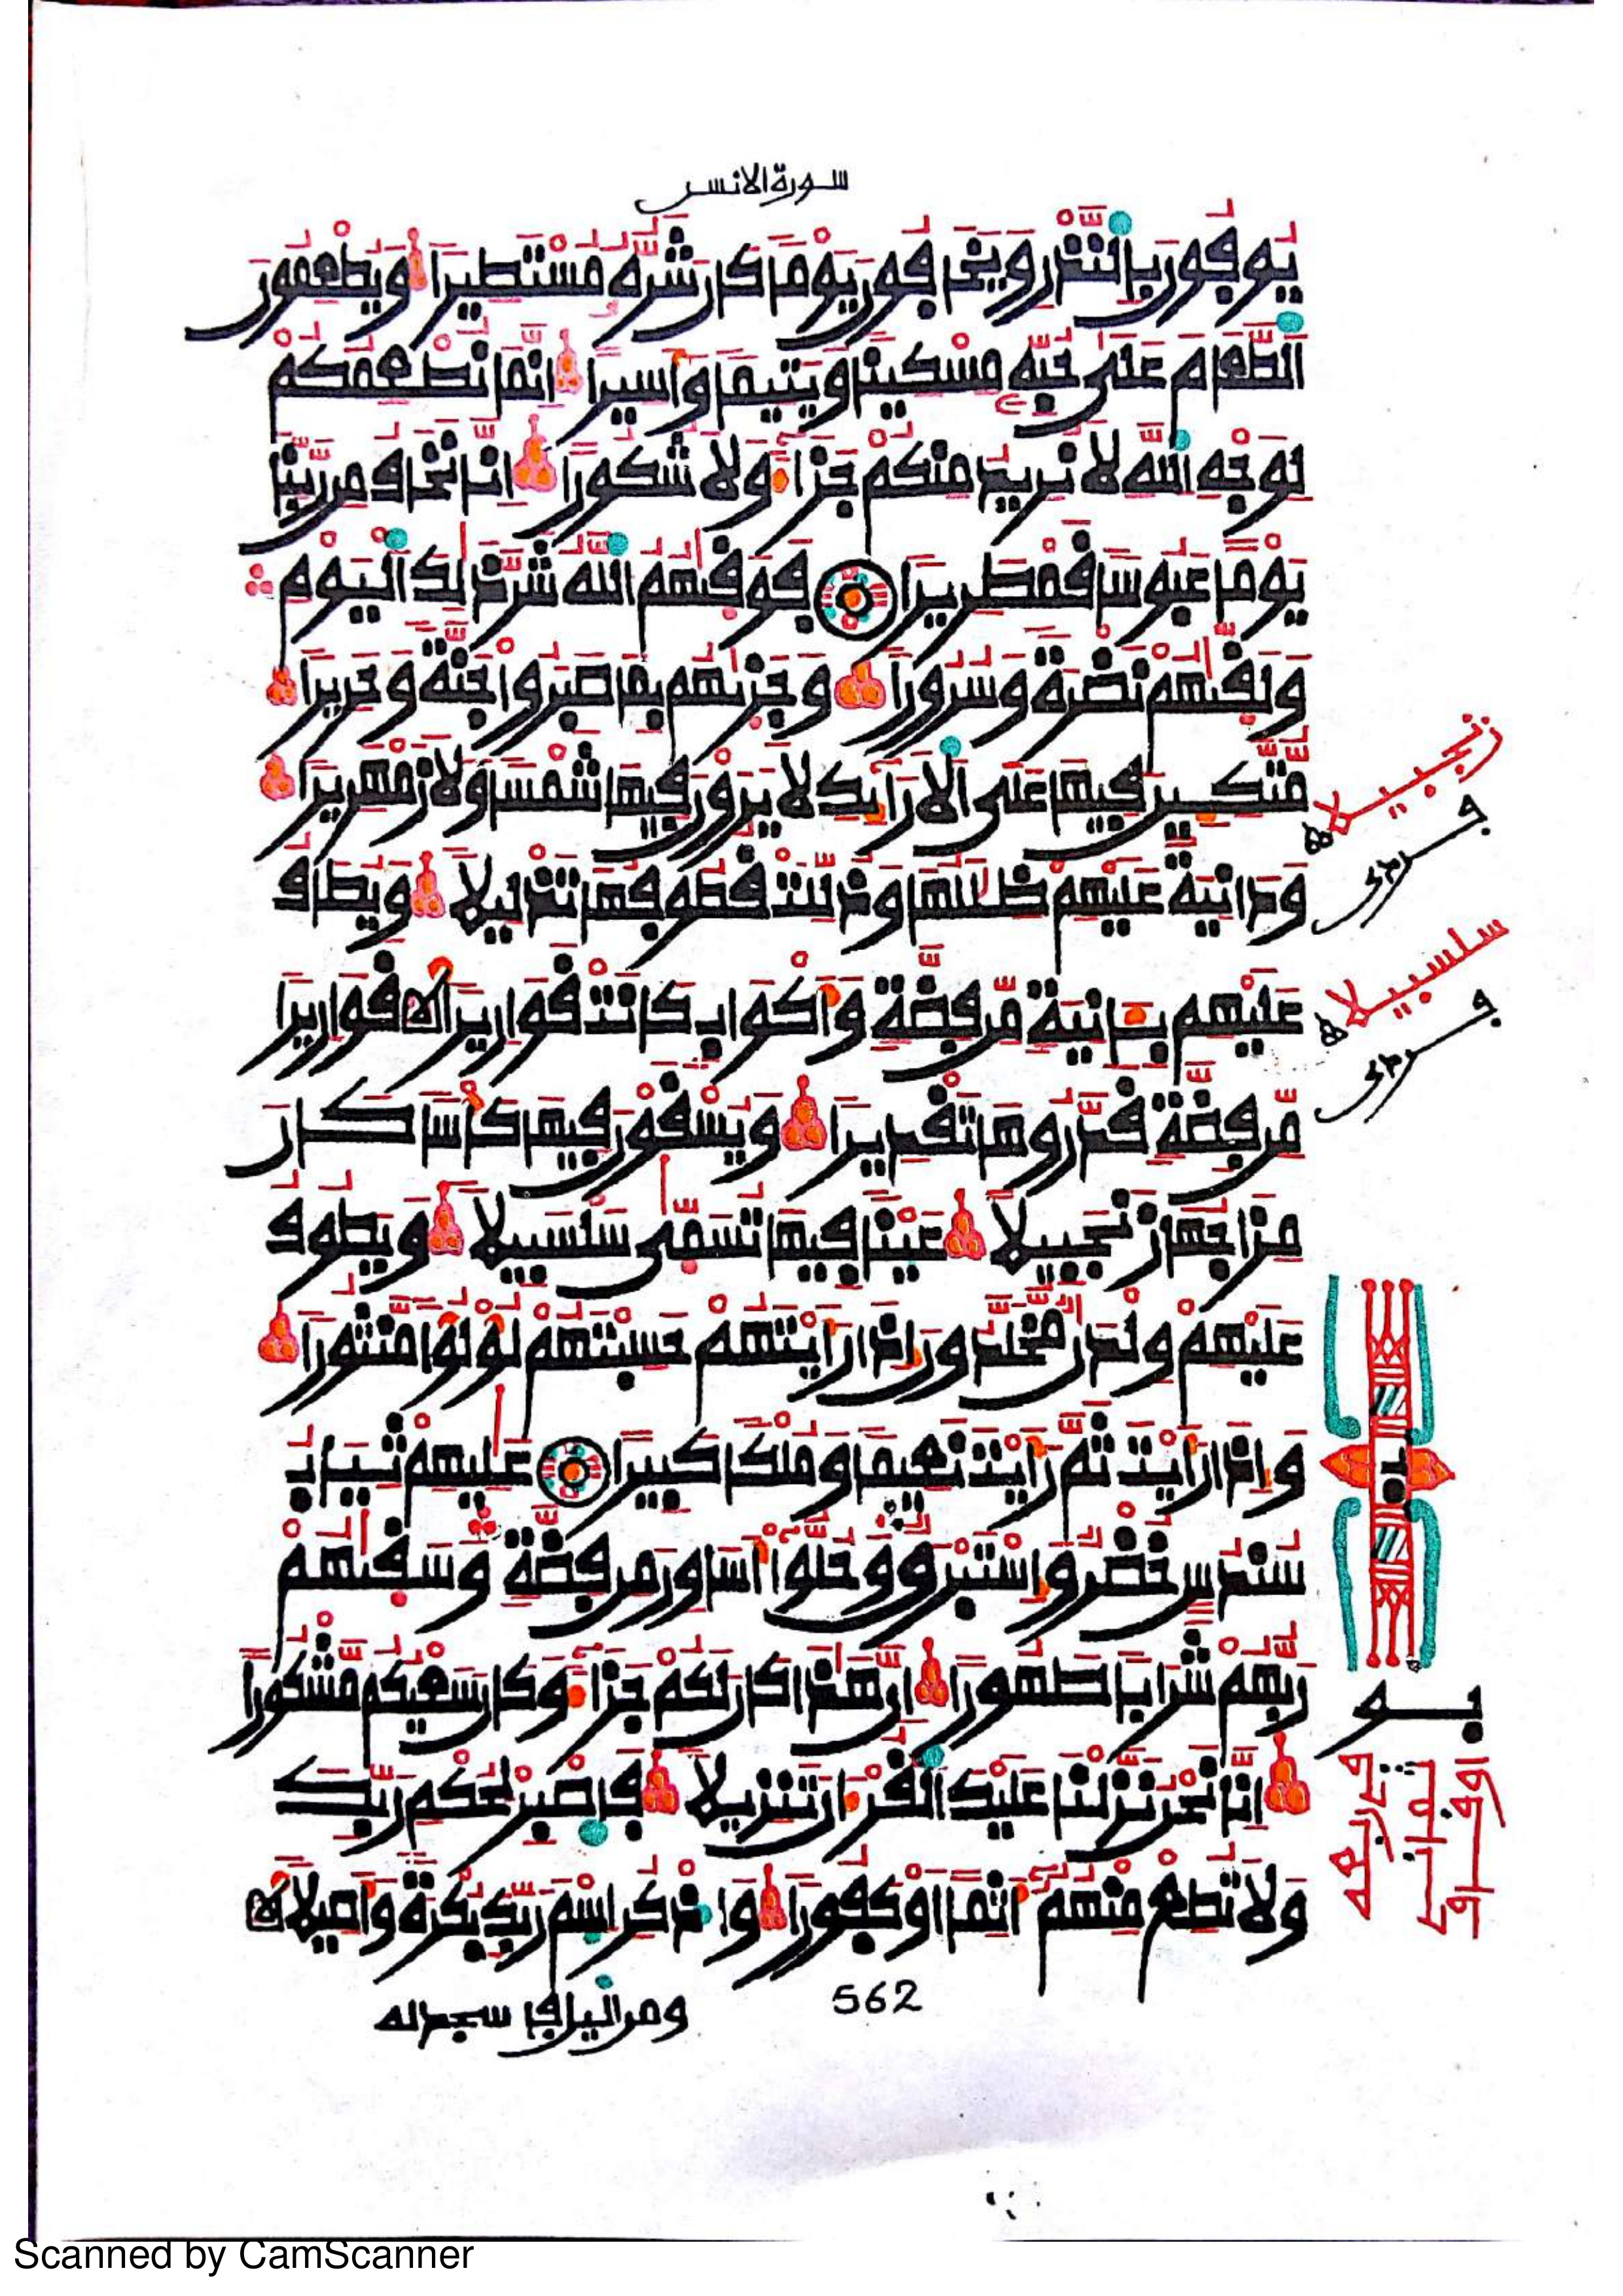 سورة الانسٰن
يُوفُونَ بِالنَّذْرِ وَيَخَافُونَ يَوْمًا كَانَ شَرُّهُ مُسْتَطِيرًا وَيُطْعِمُونَ
اَلطَّعَامَ عَلَىٰ حُبِّهِ مِسْكِينًا وَيَتِيمًا وَأَسِيرًا إِنَّمَا نُطْعِمُكُمْ
لِوَجْهِ اِللَّهِ لَا نُرِيدُ مِنكُمْ جَزَآءً وَلَا شُكُورًا إِنَّا نَخَافُ مِن رَّبِّنَا
يَوْمًا عَبُوسًا قَمْطَرِيرًا فَوَقٰهُمُ اللَّهُ شَرَّ ذَٰلِكَ اَلْيَوْمِ
وَلَقّٰهُمْ نَضْرَةً وَسُرُورًا وَجَزٰهُم بِمَا صَبَرُوا جَنَّةً وَحَرِيرًا
مُّتَّكِـِٔينَ فِيهَا عَلَى اَلْأَرَآئِكِ لَا يَرَوْنَ فِيهَا شَمْسًا وَلَا زَمْهَرِيرًا
وَدَانِيَةً عَلَيْهِمْ ظِلَٰلُهَا وَذُلِّلَتْ قُطُوفُهَا تَذْلِيلًا وَيُطَافُ
عَلَيْهِم بِـَٔانِيَةٍ مِّن فِضَّةٍ وَأَكْوَابٍ كَانَتْ قَوَارِيرًا قَوَارِيرًا
مِّن فِضَّةٍ قَدَّرُوهَا تَقْدِيرًا وَيُسْقَوْنَ فِيهَا كَأْسًا كَانَ
مِزَاجُهَا زَنجَبِيلًا عَيْنًا فِيهَا تُسَمَّىٰ سَلْسَبِيلًا وَيَطُوفُ
عَلَيْهِمْ وِلْدَٰنٌ مُّخَلَّدُونَ إِذَا رَأَيْتَهُمْ حَسِبْتَهُمْ لُؤْلُؤًا مَّنثُورًا
وَإِذَا رَأَيْتَ ثَمَّ رَأَيْتَ نَعِيمًا وَمُلْكًا كَبِيرًا عَٰلِيهِمْ ثِيَابُ
سُندُسٍ خُضْرٌ وَإِسْتَبْرَقٌ وَحُلُّوا أَسَاوِرَ مِن فِضَّةٍ وَسَقٰهُمْ
رَبُّهُمْ شَرَابًا طَهُورًا إِنَّ هَٰذَا كَانَ لَكُمْ جَزَآءً وَكَانَ سَعْيُكُم مَّشْكُورًا
إِنَّا نَحْنُ نَزَّلْنَا عَلَيْكَ اَلْقُرْءَانَ تَنزِيلًا فَاصْبِرْ لِحُكْمِ رَبِّكَ
وَلَا تُطِعْ مِنْهُمْ ءَاثِمًا أَوْ كَفُورًا وَاذْكُرِ اِسْمَ رَبِّكَ بُكْرَةً وَأَصِيلًا
562
ومن اليل فاسجد له
زنجبيلا
سلسبيلا
Scanned by CamScanner